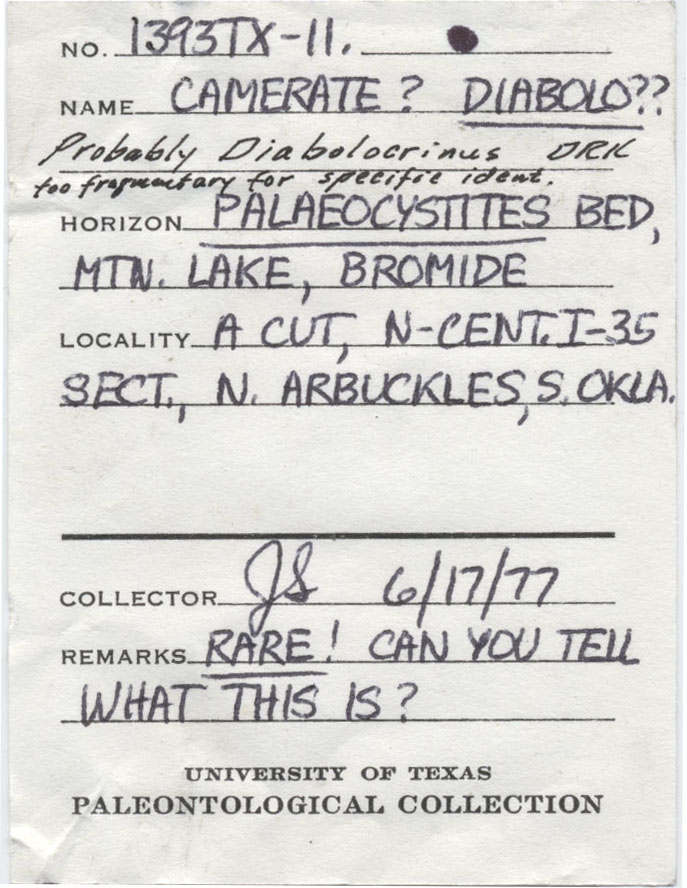 NO. 1393TX-11.
NAME CAMERATE? DIABOLO??
Probably Diabolocrinus DRK
too fragmentary for specific ident.
HORIZON PALAEOCYSTITES BED,
MTN. LAKE, BROMIDE
LOCALITY A CUT, N-CENT. I-35
SECT., N. ARBUCKLES, S. OKLA.
COLLECTOR JS 6/17/77
REMARKS RARE! CAN YOU TELL
WHAT THIS IS?
UNIVERSITY OF TEXAS
PALEONTOLOGICAL COLLECTION